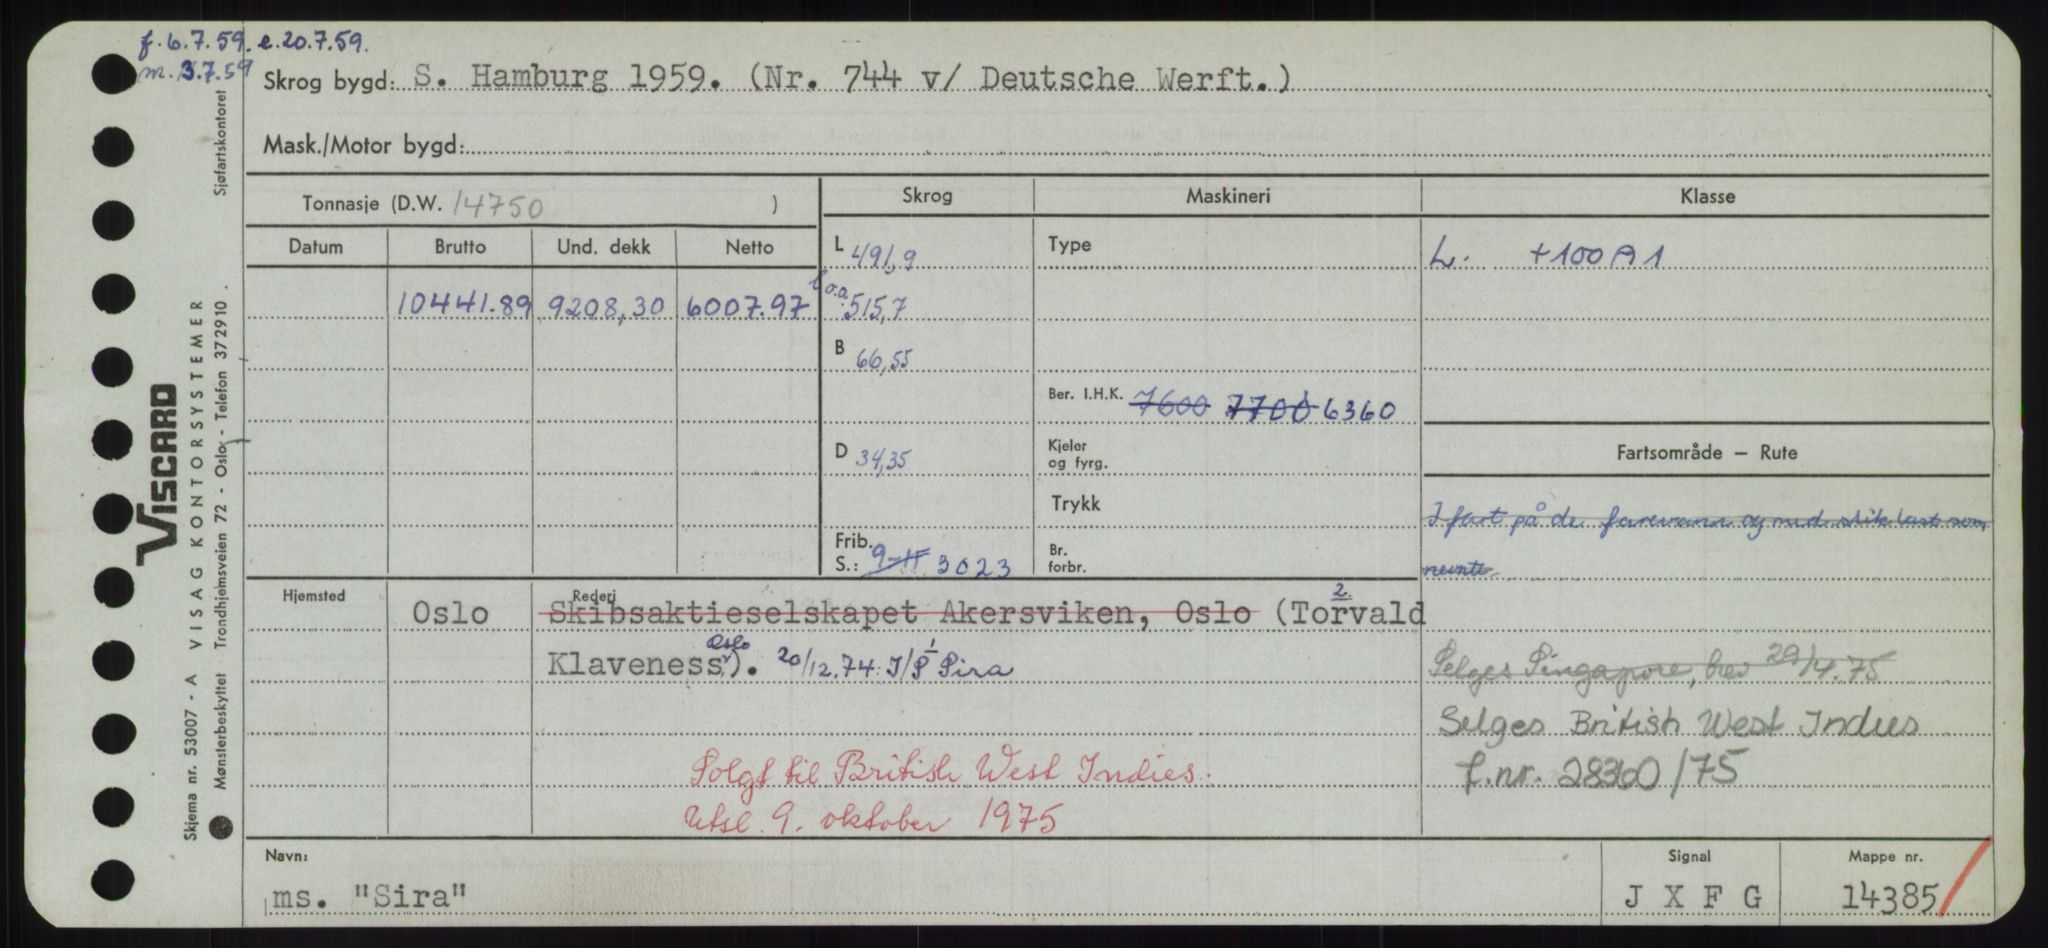 f. 6.7.59. e. 20.7.59.
m. 3.7.59
Skrog bygd: S. Hamburg 1959. (Nr. 744 v/ Deutsche Werft.)
Mask./Motor bygd:
Tonnasje (D.W. 14750 )
Skrog Maskineri Klasse
Datum Brutto Und. dekk Netto
L 491,9
Type
L. +100 A 1
10441.89 9208,30 6007.97
l o.a. 515,7
B 66,55
Ber. I.H.K. 7600 7700 6360
D 34,35
Kjeler
og fyrg.
Fartsområde — Rute
Trykk
I fart på de farevann og med slik last som
nevnte
Frib.
S.: 9-11 3023
Br.
forbr.
Hjemsted Rederi
Oslo Skibsaktieselskapet Akersviken, Oslo (Torvald
2.
Klaveness, Oslo). 20/12.74: I/S Sira
1
Selges Singapore, brev 29/4.75
Selges British West Indies
f.nr. 28360/75
Solgt til British West Indies.
Utsl. 9. oktober 1975
Navn: Signal Mappe nr.
ms. "Sira" J X F G 14385
Sjøfartskontoret
VISCARD
VISAG KONTORSYSTEMER
Trondhjemsveien 72 - Oslo - Telefon 372910.
Skjema nr. 53007 - A
Mønsterbeskyttet